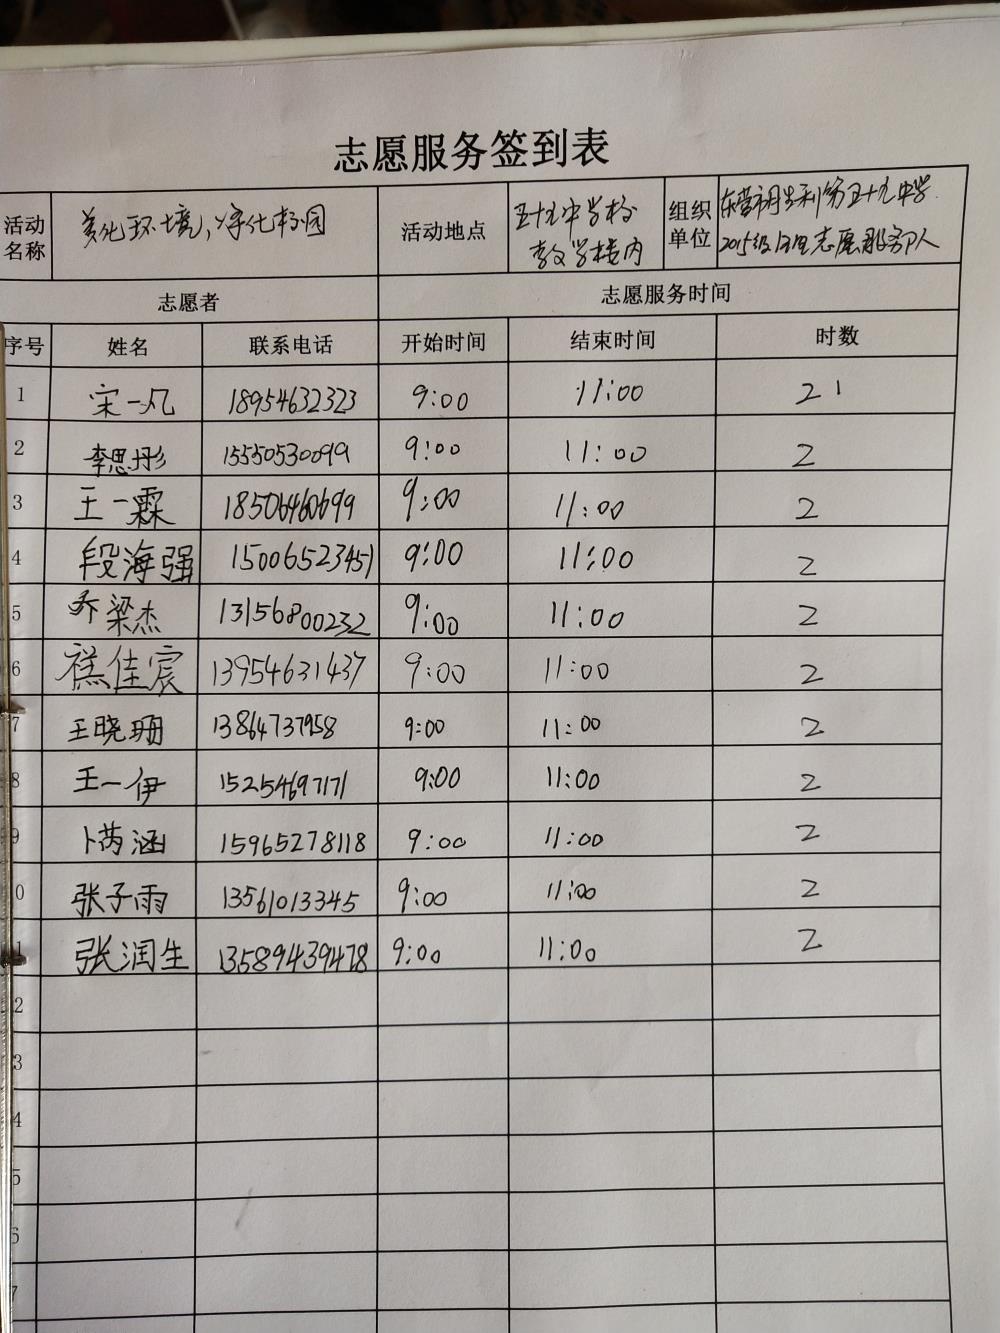 志愿服务签到表
活动名称 美化环境,净化校园 活动地点 五十九中学校教学楼内 组织单位 东营市胜利第五十九中学2015级志愿服务队
志愿者 志愿服务时间
序号 姓名 联系电话 开始时间 结束时间 时数
1 宋一凡 18954632323 9:00 11:00 2
2 李思彤 15550530099 9:00 11:00 2
3 王一霖 18506460699 9:00 11:00 2
4 段海强 15006523451 9:00 11:00 2
5 乔梁杰 13156800232 9:00 11:00 2
6 禚佳宸 13954631437 9:00 11:00 2
7 王晓珊 13864737958 9:00 11:00 2
8 王一伊 15254697171 9:00 11:00 2
9 卜芮涵 15965278118 9:00 11:00 2
0 张子雨 13561013345 9:00 11:00 2
1 张润生 13589439478 9:00 11:00 2
2
3
4
5
6
7